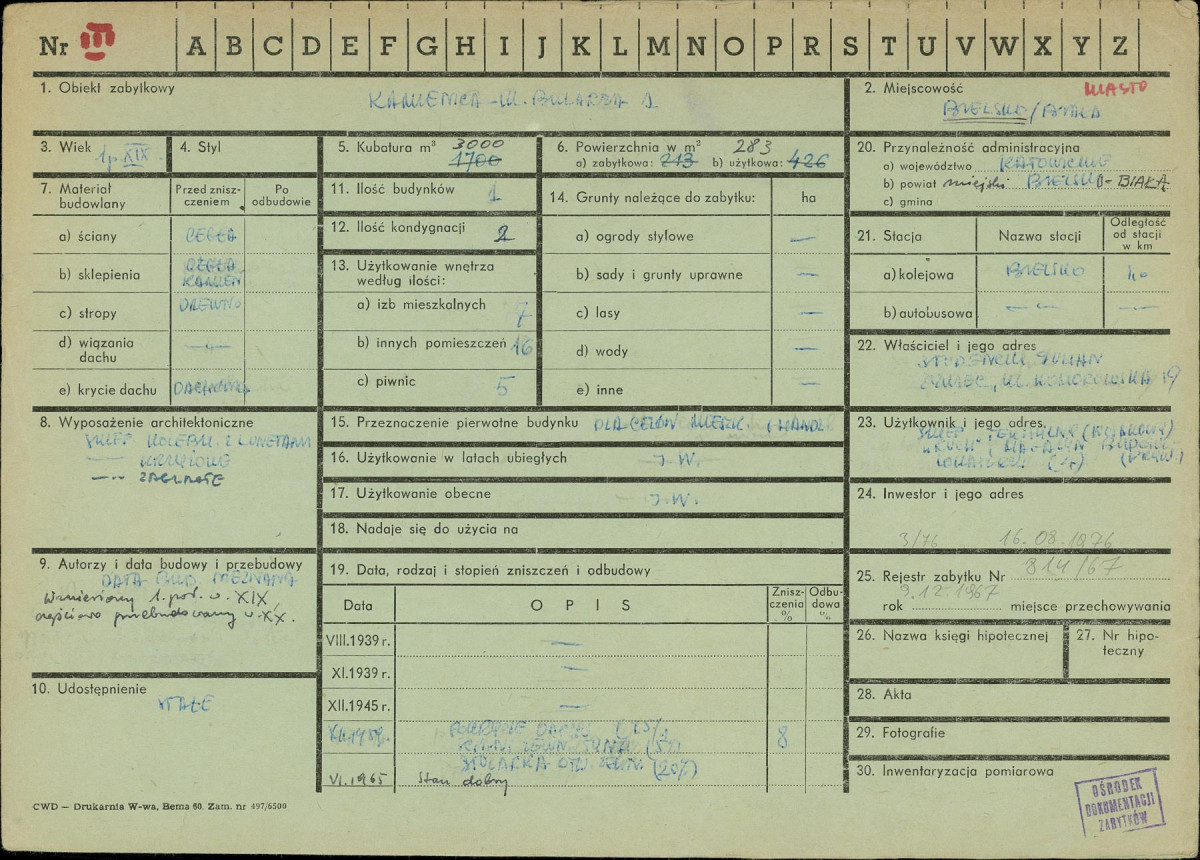 Nr III A B C D E F G H I J K L M N O P R S T U V W X Y Z
1. Obiekt zabytkowy
KAMIENICA - UL.
2. Miejscowość MIASTO
BIELSKO/BIAŁA
3. Wiek 1 p. XIX
4. Styl
5. Kubatura m³ 3000
1700
6. Powierzchnia w m² 283
a) zabytkowa: 213 b) użytkowa: 426
20. Przynależność administracyjna
a) województwo KATOWICKIE
b) powiat miejski BIELSKO-BIAŁA
c) gmina
7. Materiał budowlany
Przed zniszczeniem
Po odbudowie
a) ściany CEGŁA
b) sklepienia CEGŁA
KAMIEŃ
c) stropy DREWNO
d) wiązania dachu —„—
e) krycie dachu DACHÓWKA
11. Ilość budynków 1
12. Ilość kondygnacji 2
13. Użytkowanie wnętrza
według ilości:
a) izb mieszkalnych 7
b) innych pomieszczeń 16
c) piwnic 5
14. Grunty należące do zabytku: ha
a) ogrody stylowe —
b) sady i grunty uprawne —
c) lasy —
d) wody —
e) inne —
21. Stacja
Nazwa stacji
Odległość
od stacji
w km
a) kolejowa BIELSKO
b) autobusowa — — —
22. Właściciel i jego adres
JULIAN
UL. KOMOROWSKA
8. Wyposażenie architektoniczne
SKLEP KOLEBK. Z LUNETAMI
—„— KRZYŻOWE
—„— ŻAGLASTE
15. Przeznaczenie pierwotne budynku DLA CELÓW MIESZK. I HANDL
16. Użytkowanie w latach ubiegłych J.W.
17. Użytkowanie obecne J.W.
18. Nadaje się do użycia na
23. Użytkownik i jego adres
SKLEP
"RUCH", MAGAZYN
24. Inwestor i jego adres
3/76 16.08.1976
9. Autorzy i data budowy i przebudowy
DATA BUD. NIEZNANA
Wzniesiony 1. poł. w. XIX,
częściowo przebudowany w. XX.
19. Data, rodzaj i stopień zniszczeń i odbudowy
Data
OPIS
Zniszczenia %
Odbudowa %
VIII.1939 r. —
XI.1939 r. —
XII.1945 r. —
XII.1959r. 8
STOLARKA (20%)
VI.1965 Stan dobry
25. Rejestr zabytku Nr 814/67
9.12.1967
rok miejsce przechowywania
26. Nazwa księgi hipotecznej
27. Nr hipoteczny
10. Udostępnienie
STAŁE
28. Akta
29. Fotografie
30. Inwentaryzacja pomiarowa
CWD – Drukarnia W-wa, Bema 60. Zam. nr 497/6500
OŚRODEK
DOKUMENTACJI
ZABYTKÓW